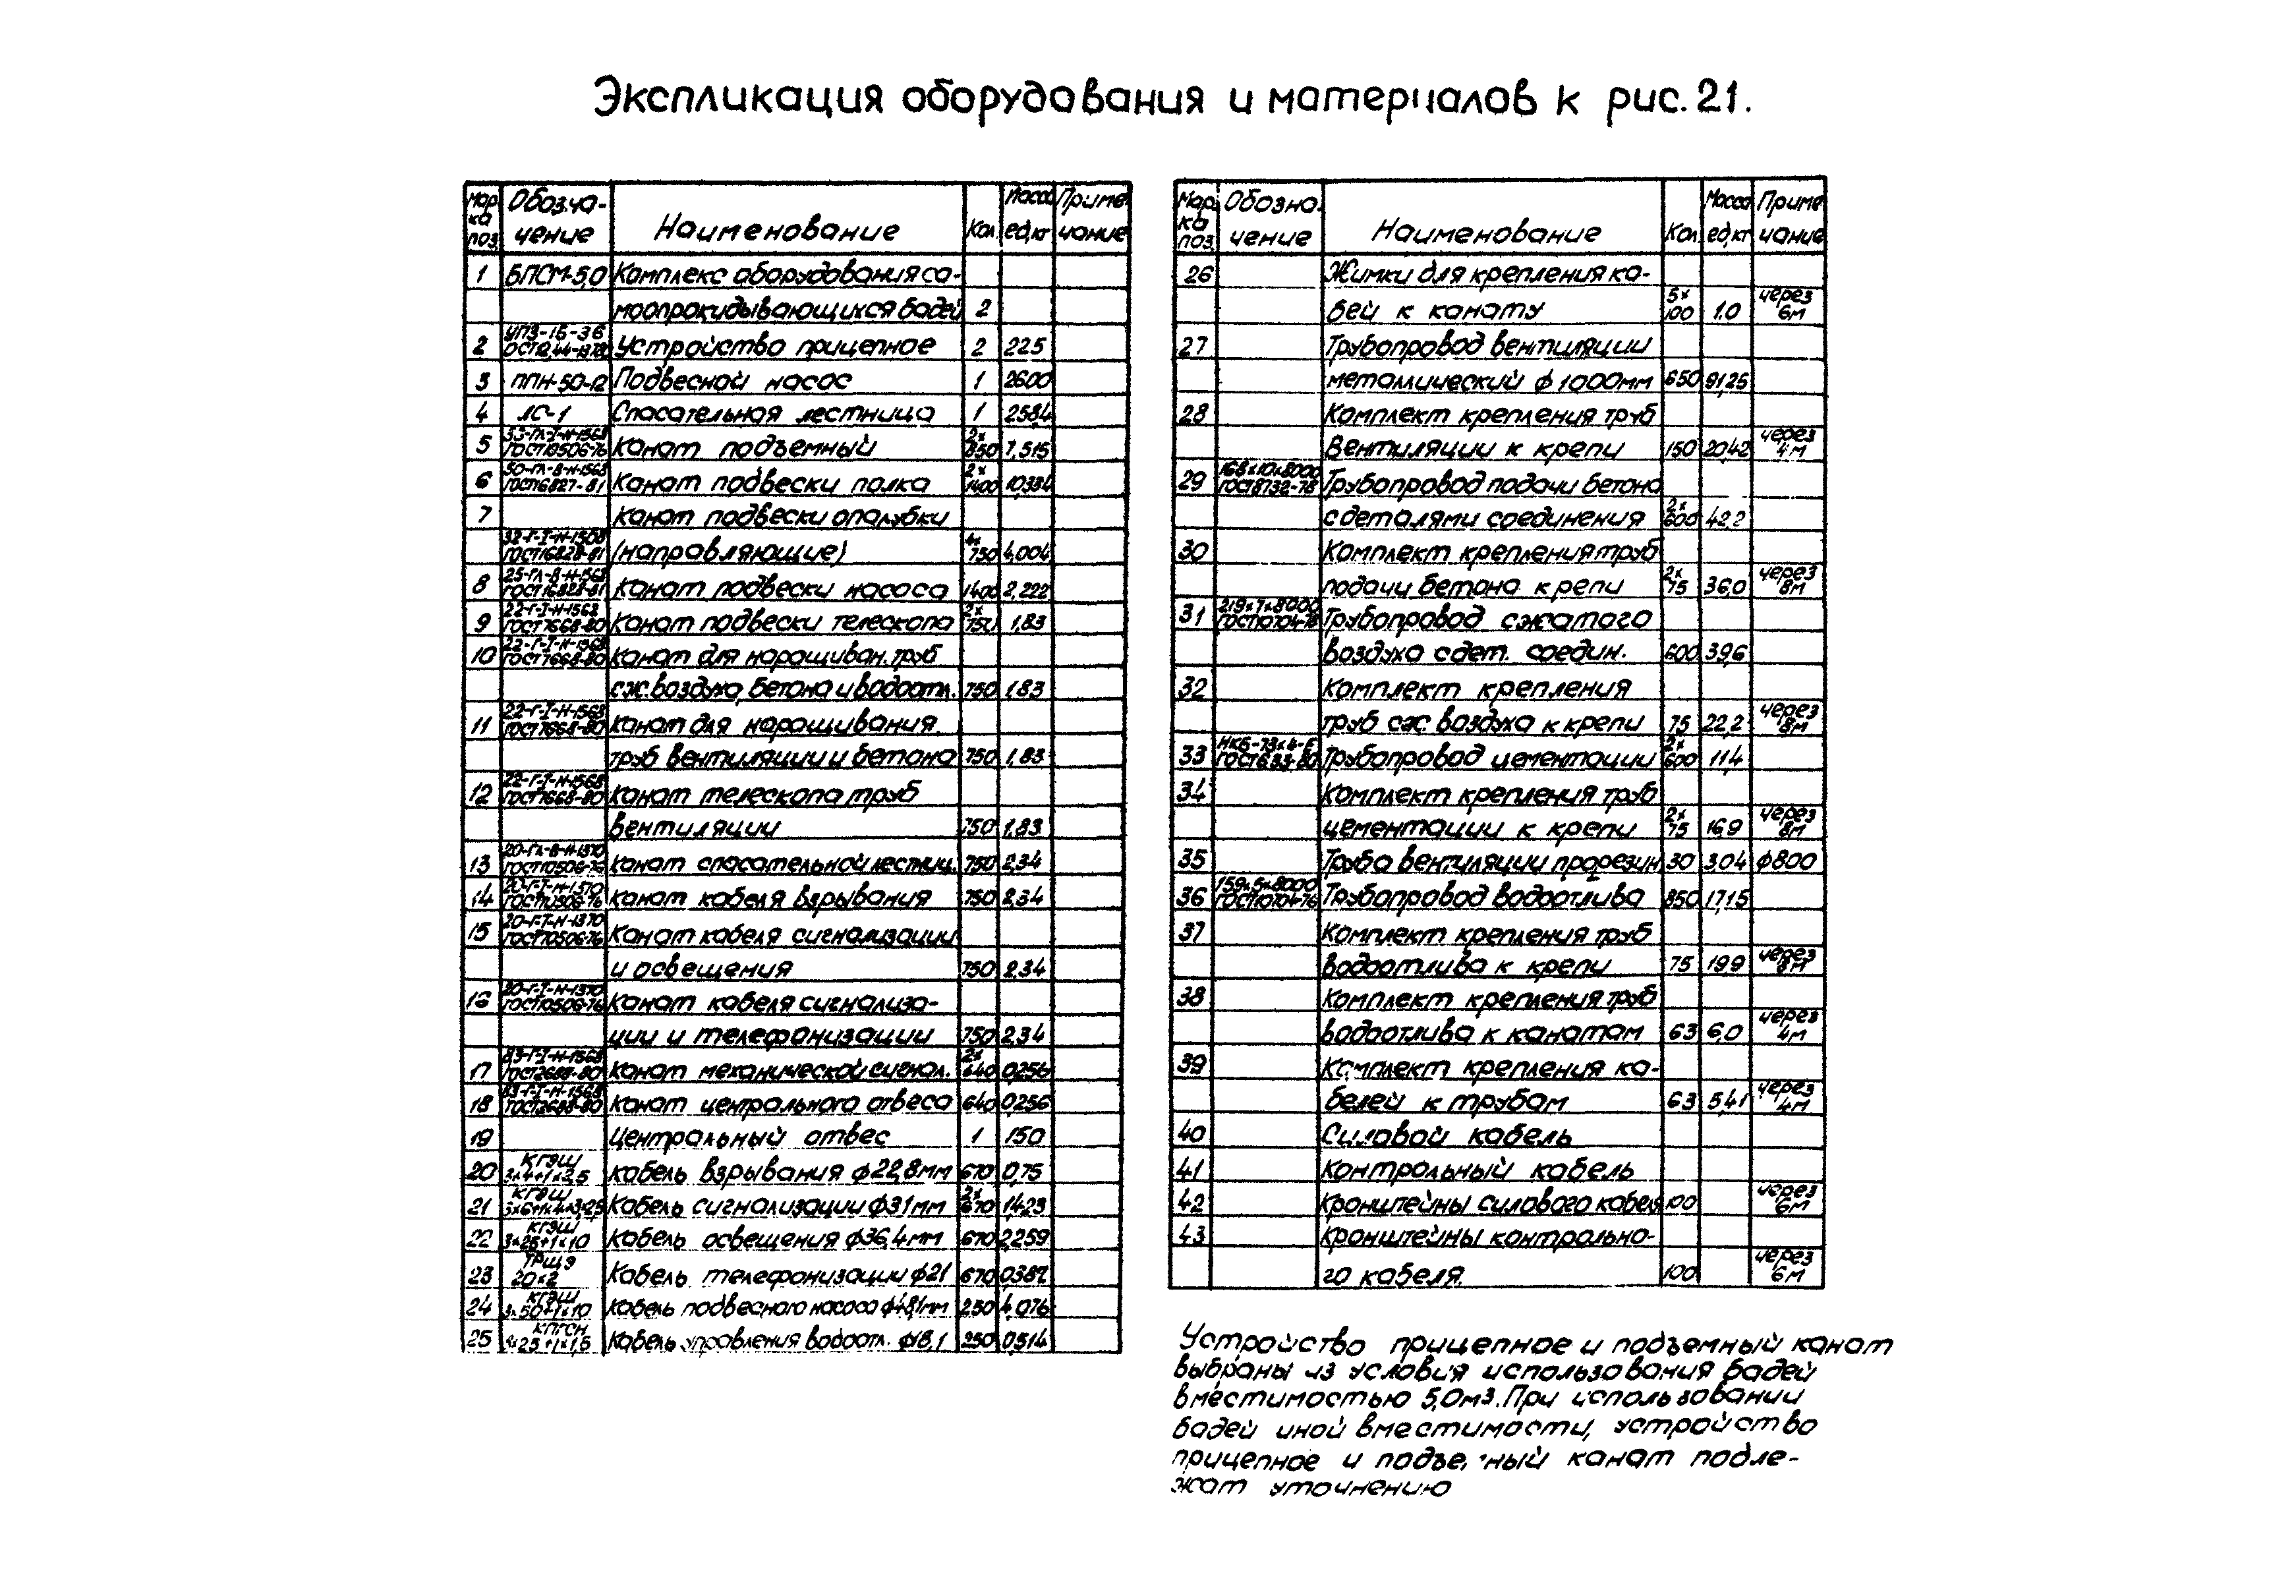 Экспликация оборудования и материалов к рис. 21.
Мар Обозна- Наименование Кол. Масса Приме
ка чение ед,кг чание
поз.
1 БПСМ-5,0 Комплекс оборудования са-
моопрокидывающихся бадей 2
2 УПЗ-15-36 Устройство прицепное 2 225
3 ППН-50-12 Подвесной насос 1 2600
4 ЛС-1 Спасательная лестница 1 2584
5 33-Гл-I-Н-1568 ГОСТ10506-76 Канат подъемный 2х 850 7,515
6 50-Гл-В-Н-1568 ГОСТ16827-81 Канат подвески полка 2х 1400 10,334
7 Канат подвески опалубки
32-Г-I-Н-1568 ГОСТ16828-81 (направляющие) 4х 750 4,004
8 25-Гл-В-Н-1568 ГОСТ16828-81 Канат подвески насоса 1400 2,222
9 22-Г-I-Н-1568 ГОСТ7668-80 Канат подвески телескопа 2х 750 1,83
10 22-Г-I-Н-1568 ГОСТ7668-80 Канат для наращиван. труб
сж.воздуха, бетона и водоотл. 750 1,83
11 22-Г-I-Н-1568 ГОСТ7668-80 Канат для наращивания
труб вентиляции и бетона 750 1,83
12 22-Г-I-Н-1568 ГОСТ7668-80 Канат телескопа труб
вентиляции 750 1,83
13 20-Гл-В-Н-1370 ГОСТ10506-76 Канат спасательной лестниц. 750 2,34
14 20-Г-I-Н-1370 ГОСТ10506-76 Канат кабеля взрывания 750 2,34
15 20-Г-I-Н-1370 ГОСТ10506-76 Канат кабеля сигнализации
и освещения 750 2,34
16 20-Г-I-Н-1370 ГОСТ10506-76 Канат кабеля сигнализа-
ции и телефонизации 750 2,34
17 8,3-Г-I-Н-1568 ГОСТ2688-80 Канат механической сигнал. 2х 640 0,256
18 8,3-Г-I-Н-1568 ГОСТ2688-80 Канат центрального отвеса 640 0256
19 Центральный отвес 1 150
20 КГЭШ 3х4+1х2,5 Кабель взрывания ф22,8мм 670 0,75
21 КГЭШ Кабель сигнализации ф31мм 2х 670 1,423
22 КГЭШ 3х25+1х10 Кабель освещения ф36,4мм 670 2,259
23 ТРШЭ 20х2 Кабель телефонизации ф21 670 0,387
24 КГЭШ 3х50+1х10 Кабель подвесного насоса ф48,1мм 250 4,076
25 КПГСН Кабель управления водоотл. ф18,1 250 0,514
Мар. Обозна- Наименование Кол Масса Приме
ка чение ед,кг чание
поз.
26 Жимки для крепления ка-
бей к канату 5х 100 1.0 через 6м
27 Трубопровод вентиляции
металлический ф 1000мм 650 91,25
28 Комплект крепления труб
вентиляции к крепи 150 20,42 через 4м
29 168х10х8000 ГОСТ8732-78 Трубопровод подачи бетона
с деталями соединения 2х 600 42,2
30 Комплект крепления труб
подачи бетона к репи 2х 75 36,0 через 8м
31 219х7х8000 ГОСТ10704-76 Трубопровод сжатого
воздуха с дет. соедин. 600 39,6
32 Комплект крепления
труб сж. воздуха к крепи 75 22,2 через 8м
33 НКБ-73х4-Е ГОСТ633-80 Трубопровод цементации 2х 600 11,4
34 Комплект крепления труб
цементации к крепи 2х 75 16,9 через 8м
35 Труба вентиляции прорезин 30 3,04 ф800
36 159х5х8000 ГОСТ10704-76 Трубопровод водоотлива 850 17,15
37 Комплект крепления труб
водоотлива к крепи 75 19,9 через 8м
38 Комплект крепления труб
водоотлива к канатам 63 6,0 через 4м
39 Комплект крепления ка-
белей к трубам 63 5,41 через 4м
40 Силовой кабель
41 Контрольный кабель
42 Кронштейны силового кабеля 100 через 6м
43 Кронштейны контрольно-
го кабеля. 100 через 6м
Устройство прицепное и подъемный канат
выбраны из условия использования бадей
вместимостью 5,0м3. При использовании
бадей иной вместимости, устройство
прицепное и канат подле-
жат уточнению